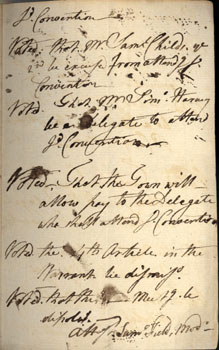 sd Convention
Voted. That Mr Saml Childs
be excuse from attendg sd
Convention
Voted That Mr Simn Harvey
be a Delegate to attend
sd Convention
Voted. That the Town will
allow pay to the Delegate
who shall attend sd Convention
Voted the 4th Article in the
Warrant be dismiss
Voted that the Meetg be
disolvd
attst Saml Field, Modr